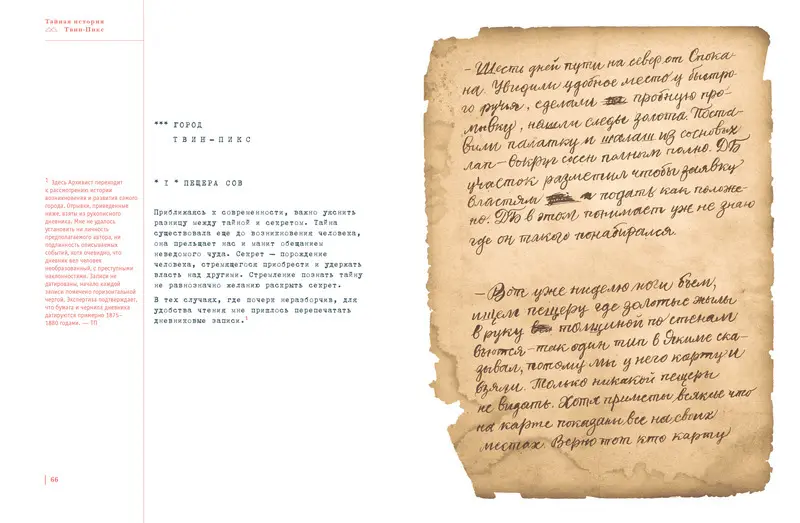 Тайная история
Твин-Пикс
*** ГОРОД
ТВИН-ПИКС
* I * ПЕЩЕРА СОВ
Приближаясь к современности, важно уяснить
разницу между тайной и секретом. Тайна
существовала еще до возникновения человека,
она прельщает нас и манит обещанием
неведомого чуда. Секрет — порождение
человека, стремящегося приобрести и удержать
власть над другими. Стремление познать тайну
не равнозначно желанию раскрыть секрет.
В тех случаях, где почерк неразборчив, для
удобства чтения мне пришлось перепечатать
дневниковые записи.1
1 Здесь Архивист переходит
к рассмотрению истории
возникновения и развития самого
города. Отрывки, приведенные
ниже, взяты из рукописного
дневника. Мне не удалось
установить ни личность
предполагаемого автора, ни
подлинность описываемых
событий, хотя очевидно, что
дневник вел человек
необразованный, с преступными
наклонностями. Записи не
датированы, начало каждой
записи помечено горизонтальной
чертой. Экспертиза подтверждает,
что бумага и чернила дневника
датируются примерно 1875–
1880 годами. — ТП
66
– Шесть дней пути на север от Спока-
на. Увидили удобное место у быстро-
го ручья, сделали пробную про-
мывку, нашли следы золота. Поста-
вили палатку и шалаш из сосновых
лап – вокруг сосен полным полно. ДБ
участок разметил чтобы заявку
властям подать как полож-
но. ДБ в этом понимает уже не знаю
где он такого понабирался.
– Вот уже ниделю ноги бьем,
ищем пещеру где золотые жылы
в руку толщиной по стенам
вьются – так один тип в Якиме ска-
зывал, потому мы у него карту и
взяли. Только никакой пещеры
не видать. Хотя приметы всякые что
на карте показаны все на своих
местах. Верно тот кто карту